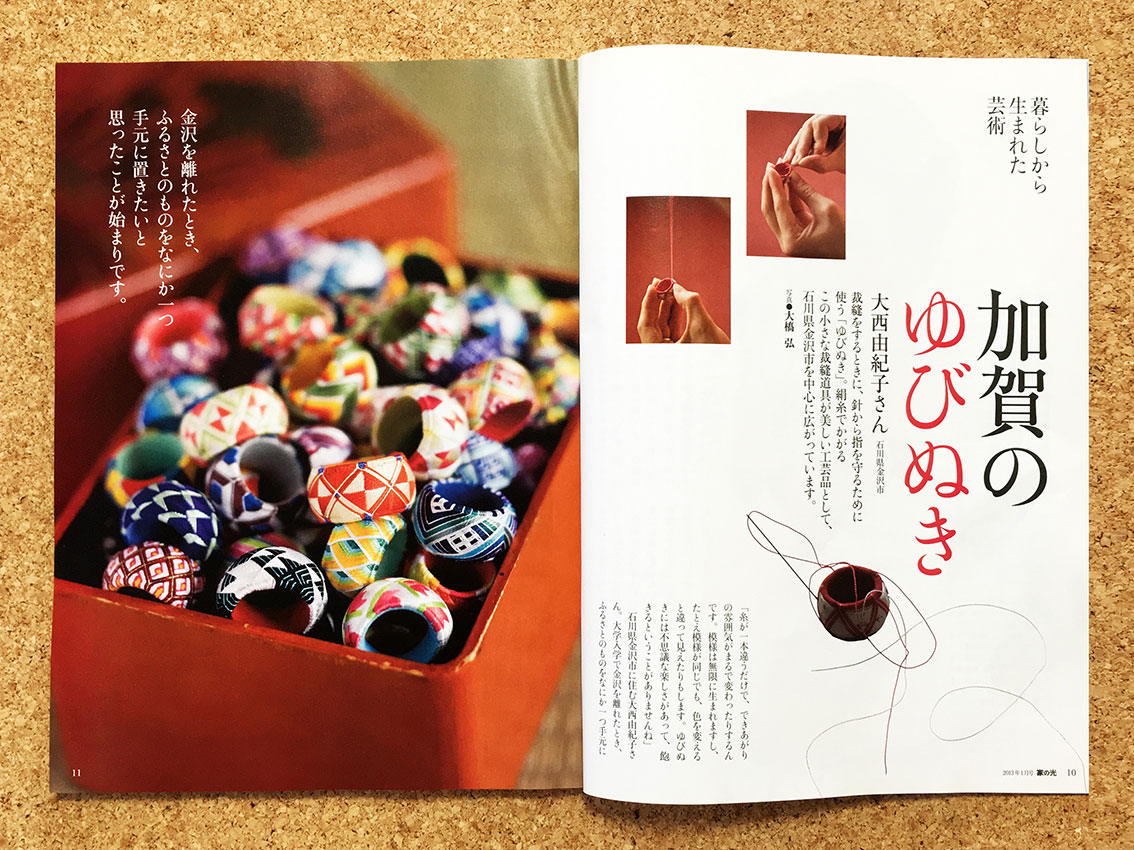 暮らしから
生まれた
芸術
加賀の
ゆびぬき
大西由紀子さん 石川県金沢市
裁縫をするときに、針から指を守るために
使う「ゆびぬき」。絹糸でかがる
この小さな裁縫道具が美しい工芸品として、
石川県金沢市を中心に広がっています。
写真●大橋 弘
「糸が一本違うだけで、できあがり
の雰囲気がまるで変わったりするん
です。模様は無限に生まれますし、
たとえ模様が同じでも、色を変える
と違って見えたりもします。ゆびぬ
きには不思議な楽しさがあって、飽
きるということがありませんね」
石川県金沢市に住む大西由紀子さ
ん。大学入学で金沢を離れたとき、
ふるさとのものをなにか一つ手元に
2013年1月号 家の光 10
金沢を離れたとき、
ふるさとのものをなにか一つ
手元に置きたいと
思ったことが始まりです。
11